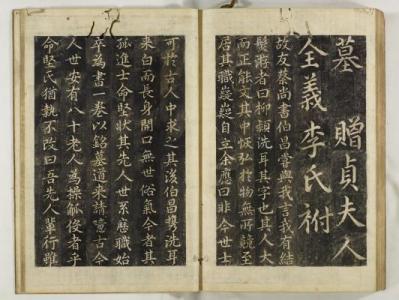 墓　贈貞夫人
全義李氏祔
故友蔡尚書伯昌嘗與我言我有結
髮游者曰柳頴洗耳其字也其人大
而正能文其中恢弘於物無所競至
居其職嶷嶷自立余應曰非今世士
可於古人中求之其後伯昌携洗耳
来白而長身開口無世俗氣今者其
孤進士命堅狀其先人世系歷職始
卒為書一卷以銘墓道来請意古今
人世安有八十老人為操觚役者乎
命堅氏猶執不改曰吾先人輩行雖